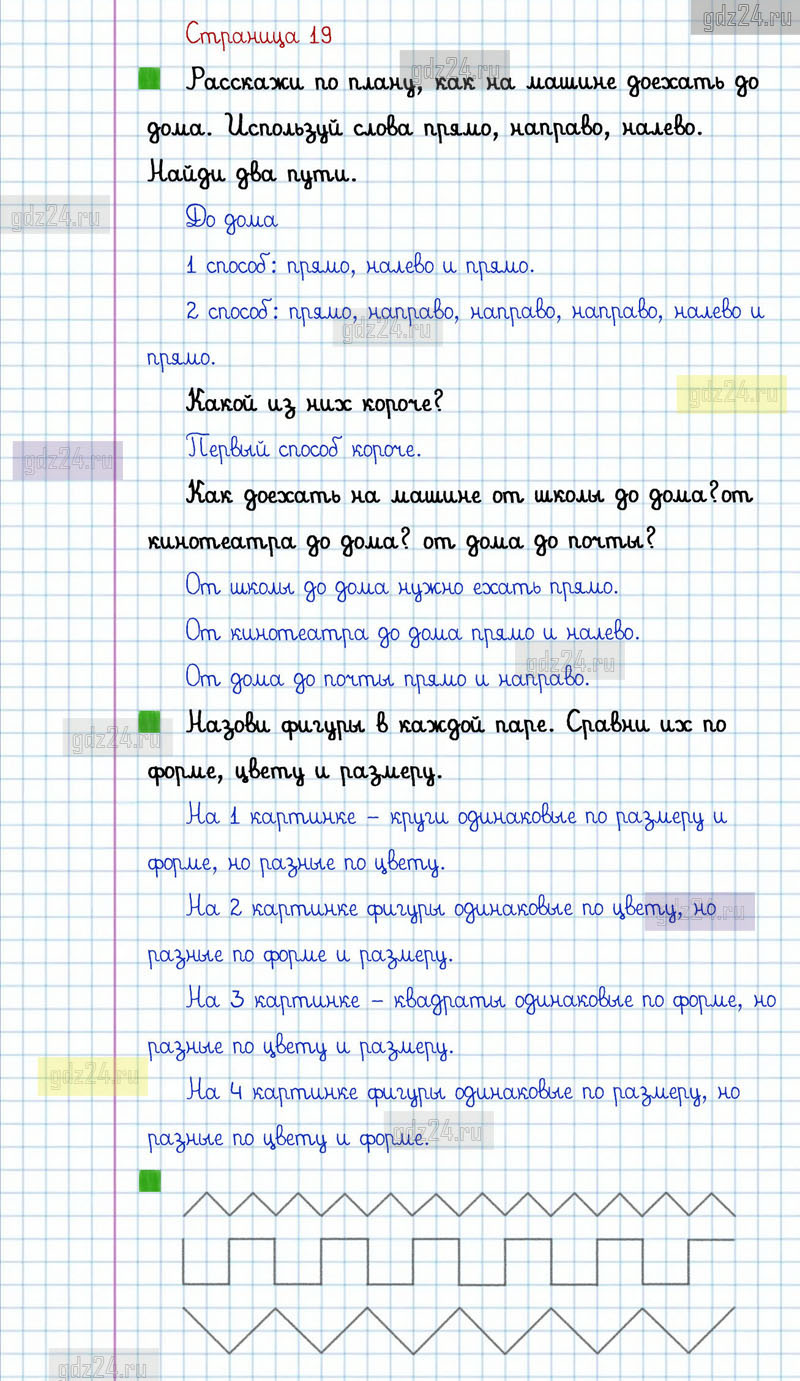 gdz24.ru
Страница 19
gdz24.ru
Расскажи по плану, как на машине доехать до
дома. Используй слова прямо, направо, налево.
Найди два пути.
gdz24.ru
До дома
1 способ: прямо, налево и прямо.
2 способ: прямо, направо, направо, направо, налево и
gdz24.ru
прямо.
gdz24.ru
Какой из них короче?
Первый способ короче.
gdz24.ru
Как доехать на машине от школы до дома?от
кинотеатра до дома? от дома до почты?
От школы до дома нужно ехать прямо.
От кинотеатра до дома прямо и налево.
gdz24.ru
От дома до почты прямо и направо.
Назови фигуры в каждой паре. Сравни их по
gdz24.ru
форме, цвету и размеру.
На 1 картинке – круги одинаковые по размеру и
форме, но разные по цвету.
На 2 картинке фигуры одинаковые по цвету, но
gdz24.ru
разные по форме и размеру.
На 3 картинке – квадраты одинаковые по форме, но
разные по цвету и размеру.
gdz24.ru
На 4 картинке фигуры одинаковые по размеру, но
gdz24.ru
разные по цвету и форме.
gdz24.ru